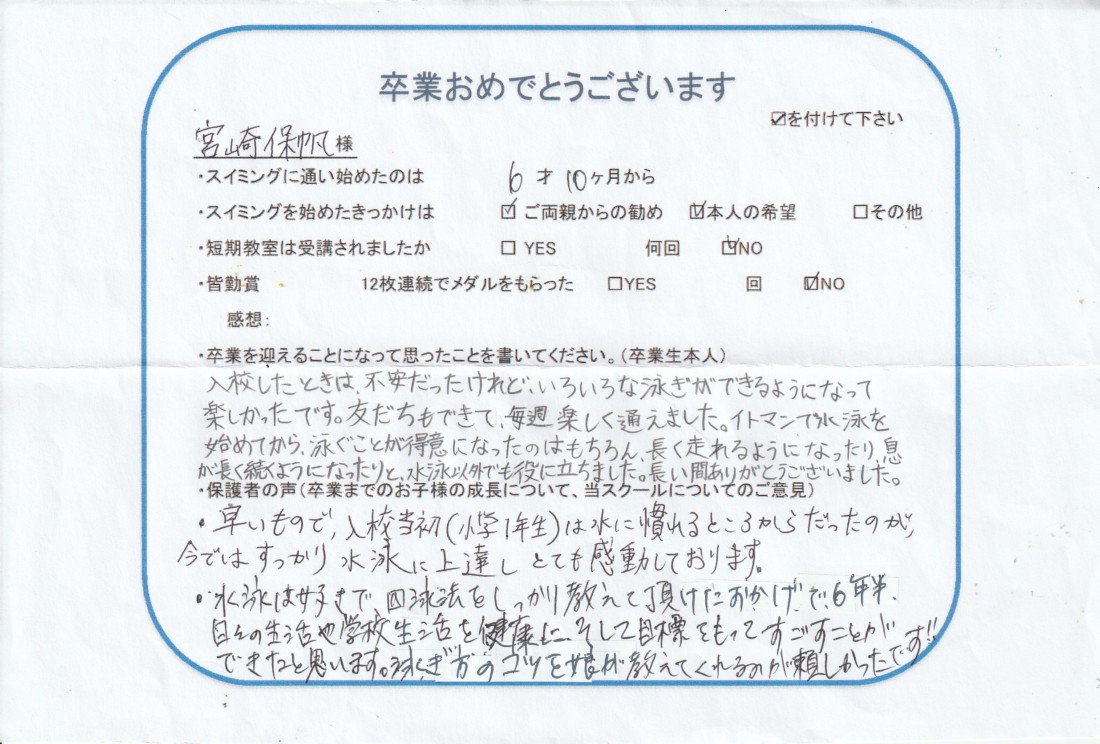 卒業おめでとうございます
☑を付けて下さい
宮崎保帆様
・スイミングに通い始めたのは 6才10ヶ月から
・スイミングを始めたきっかけは ☑ご両親からの勧め ☑本人の希望 □その他
・短期教室は受講されましたか □YES 何回 ☑NO
・皆勤賞 12枚連続でメダルをもらった □YES 回 ☑NO
感想:
・卒業を迎えることになって思ったことを書いてください。(卒業生本人)
入校したときは、不安だったけれど、いろいろな泳ぎができるようになって
楽しかったです。友だちもできて、毎週楽しく通えました。イトマンで水泳を
始めてから、泳ぐことが得意になったのはもちろん、長く走れるようになったり、息
が長く続くようになったりと、水泳以外でも役に立ちました。長い間ありがとうございました。
・保護者の声(卒業までのお子様の成長について、当スクールについてのご意見)
・早いもので、入校当初(小学1年生)は水に慣れるところからだったのが、
今ではすっかり水泳に上達しとても感動しております。
・水泳は 四泳法をしっかり教えて頂けたおかげで、6年半、
日々の生活や学校生活を健康に、そして目標をもってすごすことが
できたと思います。泳ぎ方のコツを娘が教えてくれるのが頼しかったです!!